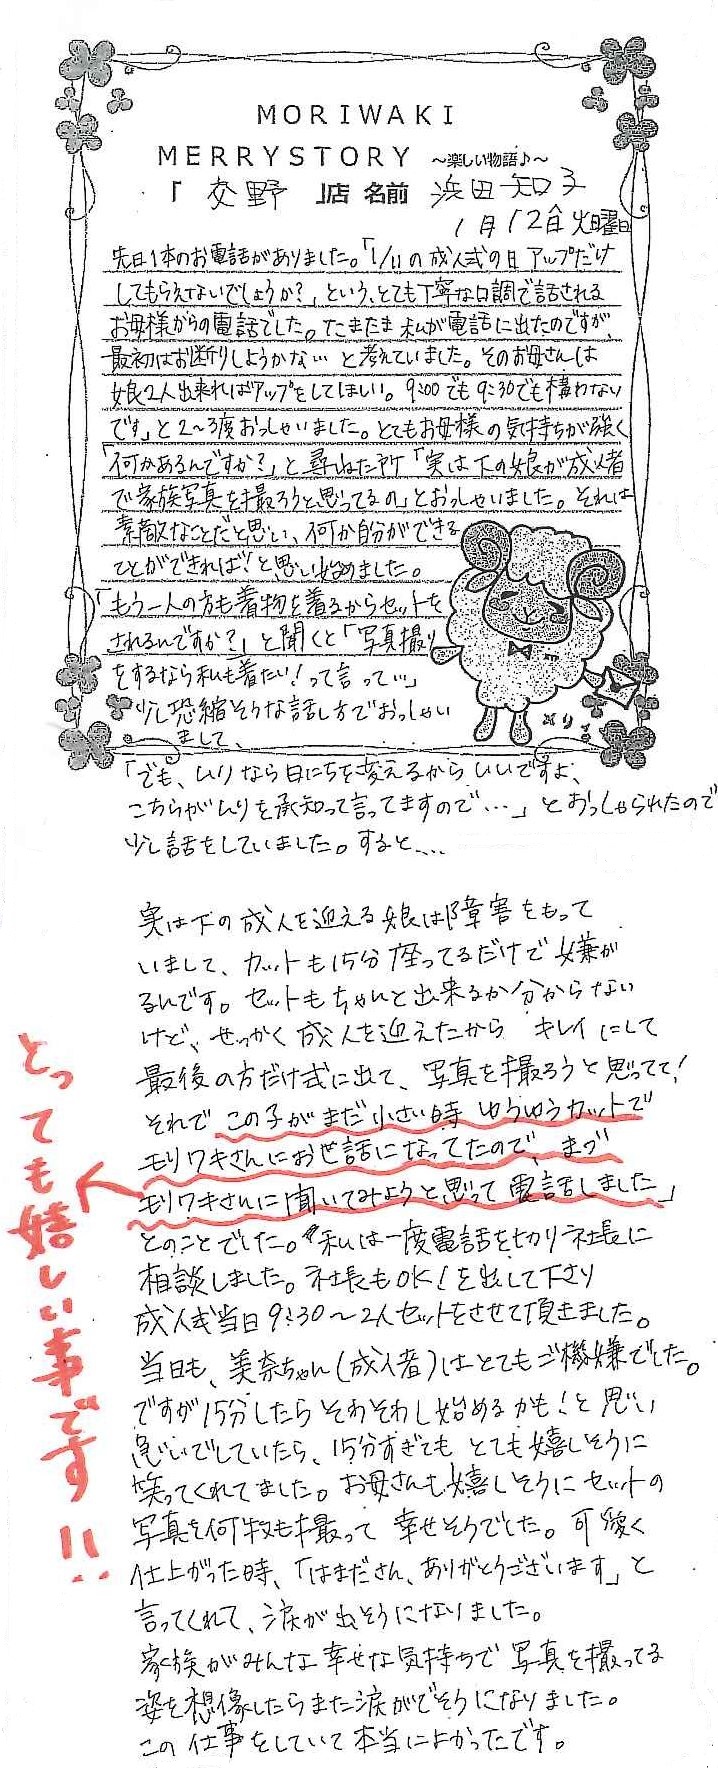 MORIWAKI
MERRYSTORY ～楽しい物語♪～
「 交野 」店 名前 浜田 知子
1月12日火曜日
先日1本のお電話がありました。「1/11の成人式の日 アップだけ
してもらえないでしょうか？」という、とても丁寧な口調で話される
お母様からの電話でした。たまたま私が電話に出たのですが、
最初はお断りしようかな… と考えていました。そのお母さんは
娘2人出来ればアップをしてほしい。9:00でも9:30でも構わない
です」と2～3度おっしゃいました。とてもお母様の気持ちが強く
「何かあるんですか？」と尋ねた所「実は下の娘が成人者
で家族写真を撮ろうと思ってるの」とおっしゃいました。それは
素敵なことだと思い、何か自分ができる
ことができれば！と思い始めました。
「もう一人の方も着物を着るからセットを
されるんですか？」と聞くと「写真撮り
をするなら私も着たい！って言って…」
少し恐縮そうな話し方でおっしゃい
まして、
めりる
「でも、ムリなら日にちを変えるからいいですよ、
こちらがムリを承知って言ってますので…」とおっしゃられたので
少し話をしていました。すると…
実は下の成人を迎える娘は障害をもって
いまして、カットも15分座ってるだけで嫌が
るんです。セットもちゃんと出来るか分からない
けど、せっかく成人を迎えたから キレイにして
最後の方だけ式に出て、写真を撮ろうと思ってて！
それで この子がまだ小さい時 ゆうゆうカットで
モリワキさんにお世話になってたので、まづ
モリワキさんに聞いてみようと思って電話しました」
とのことでした。私は一度電話を切り社長に
相談しました。社長もOK！を出して下さり
成人式当日9:30～2人セットをさせて頂きました。
当日も、美奈ちゃん(成人者)はとてもご機嫌でした。
ですが15分したらそわそわし始めるかも！と思い
急いでしていたら、15分すぎてもとても嬉しそうに
笑ってくれてました。お母さんも嬉しそうにセットの
写真を何枚も撮って 幸せそうでした。可愛く
仕上がった時、「はまださん、ありがとうございます」と
言ってくれて、涙が出そうになりました。
家族がみんな幸せな気持ちで写真を撮ってる
姿を想像したらまた涙がでそうになりました。
この仕事をしていて本当によかったです。
とっても嬉しい事です!!